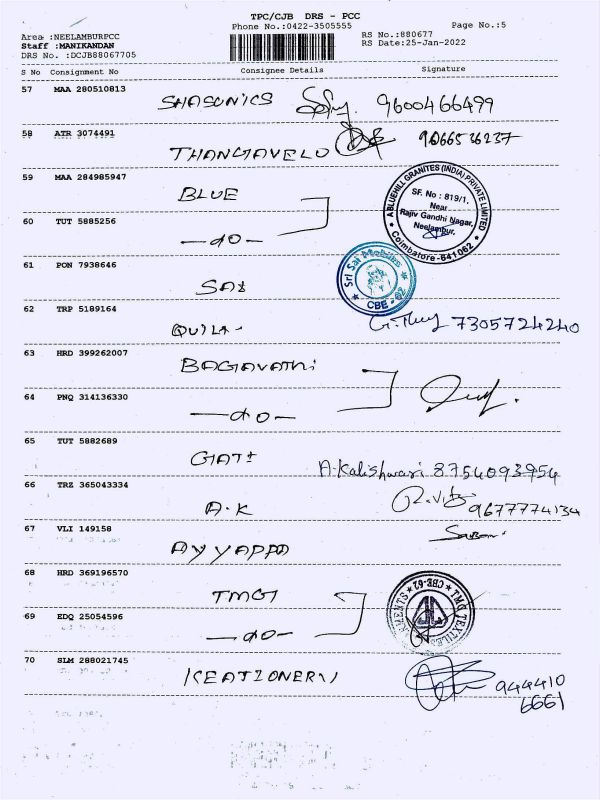 TPC/CJB DRS - PCC
Phone No.:0422-3505555
Page No.:5
Area :NEELAMBURPCC
RS No.:880677
Staff :MANIKANDAN
RS Date:25-Jan-2022
DRS No. :DCJB88067705
S No Consignment No Consignee Details Signature
57 MAA 280510813
SHASONICS 9600466499
58 ATR 3074491
THANGAVELU 9066536237
59 MAA 284985947
BLUE
ABLUEHILL GRANITES (INDIA) PRIVATE LIMITED
SF. No : 819/1,
Near
Rajiv Gandhi Nagar,
Neelambur,
Coimbatore-641062
60 TUT 5885256
—do—
61 PON 7938646
SAI
Sri Sai Mobiles
CBE - 62
62 TRP 5189164
7305724240
63 HRD 399262007
BAGAVATHi
64 PNQ 314136330
—do—
65 TUT 5882689
GATI
A.Kalishwari 8754093954
66 TRZ 365043334
A.K
9677774134
67 VLI 149158
AYYAPPA
68 HRD 369196570
TMG
CBE-62
69 EDQ 25054596
—do—
70 SLM 288021745
944410
6661